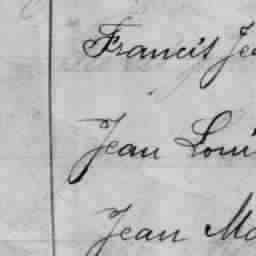 Francis Je
Jean Loui
Jean Ma